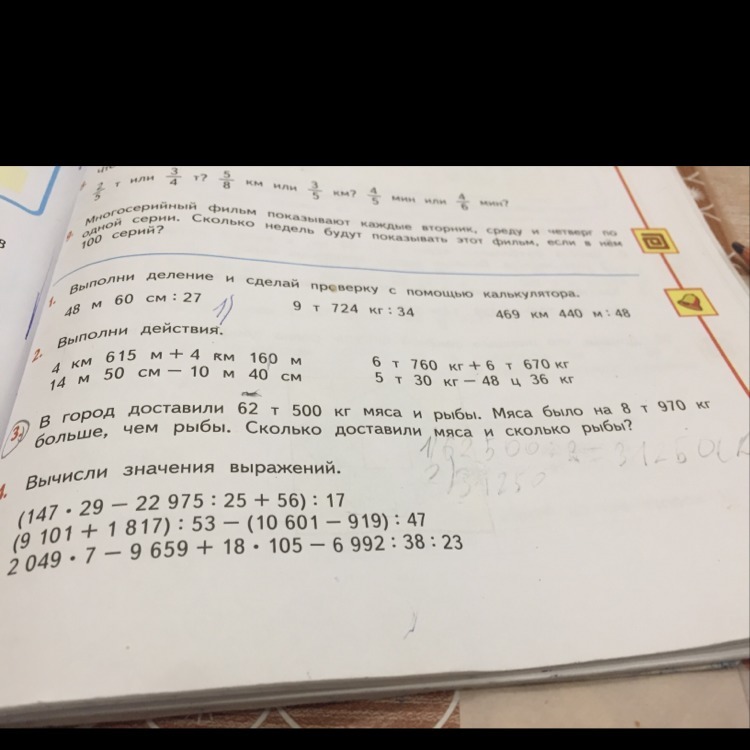 2/5 т или 3/4 т? 5/8 км или 3/5 км? 4/5 мин или 4/6 мин?
Многосерийный фильм показывают каждые вторник, среду и четверг по
одной серии. Сколько недель будут показывать этот фильм, если в нём
100 серий?
1. Выполни деление и сделай проверку с помощью калькулятора.
48 м 60 см : 27 1) 9 т 724 кг : 34 469 км 440 м : 48
2. Выполни действия.
4 км 615 м + 4 км 160 м 6 т 760 кг + 6 т 670 кг
14 м 50 см − 10 м 40 см 5 т 30 кг − 48 ц 36 кг
3. В город доставили 62 т 500 кг мяса и рыбы. Мяса было на 8 т 970 кг
больше, чем рыбы. Сколько доставили мяса и сколько рыбы?
1) 62500 : 2 = 31250 (к
2) 31250
4. Вычисли значения выражений.
(147 · 29 − 22 975 : 25 + 56) : 17
(9 101 + 1 817) : 53 − (10 601 − 919) : 47
2 049 · 7 − 9 659 + 18 · 105 − 6 992 : 38 : 23